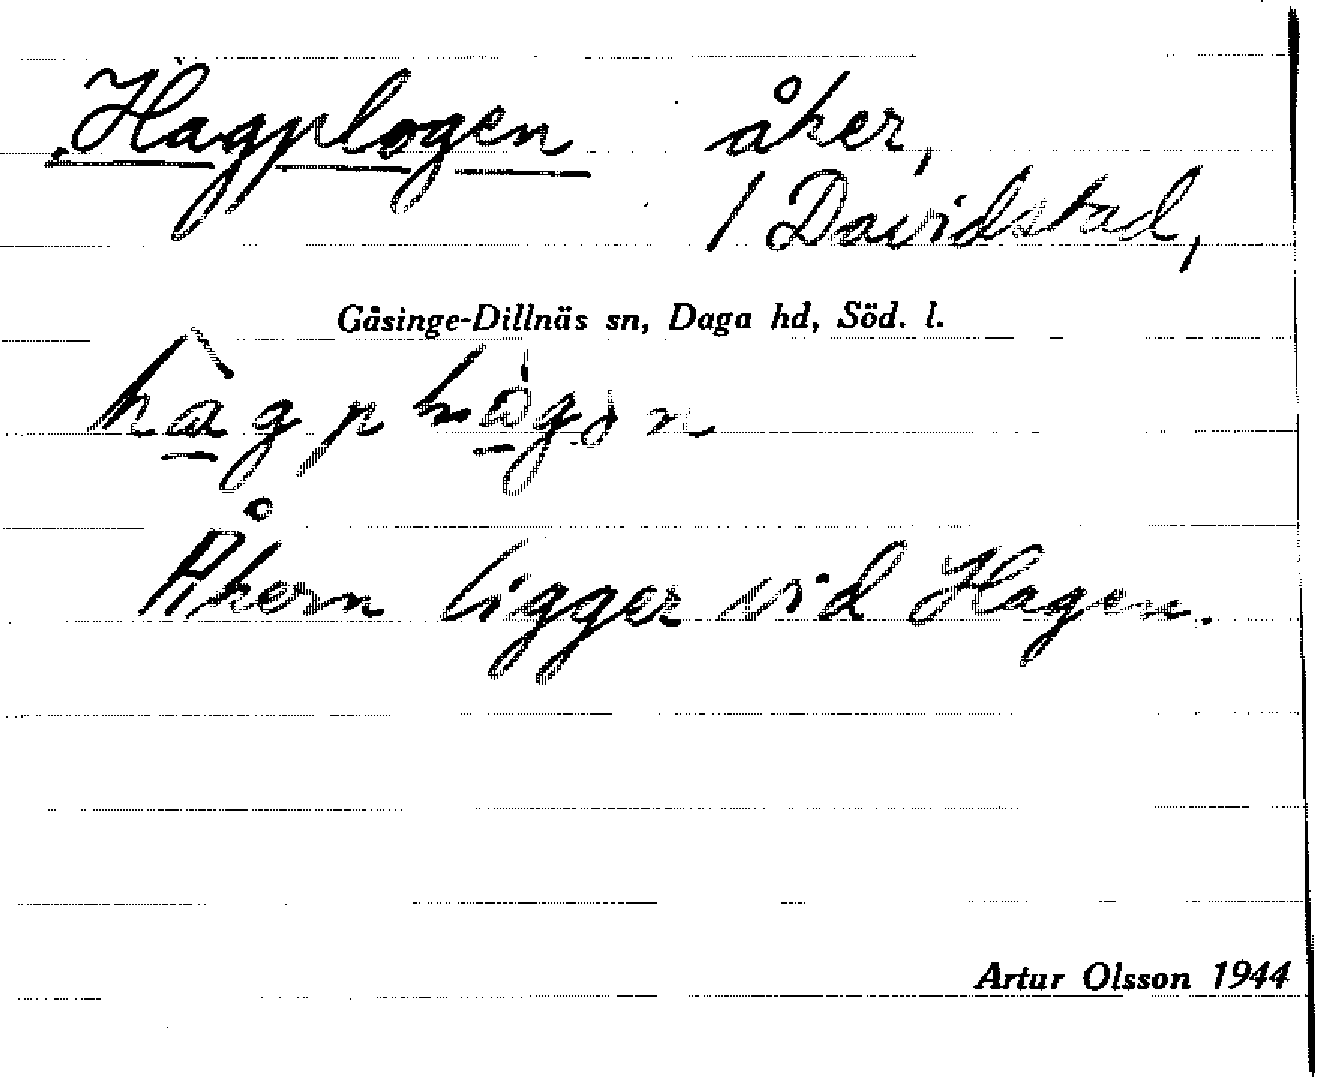 Hagplogen åker,
/ Davidstad,
Gåsinge-Dillnäs sn, Daga hd, Söd. l.
Åkern ligger vid Hagen.
Artur Olsson 1944